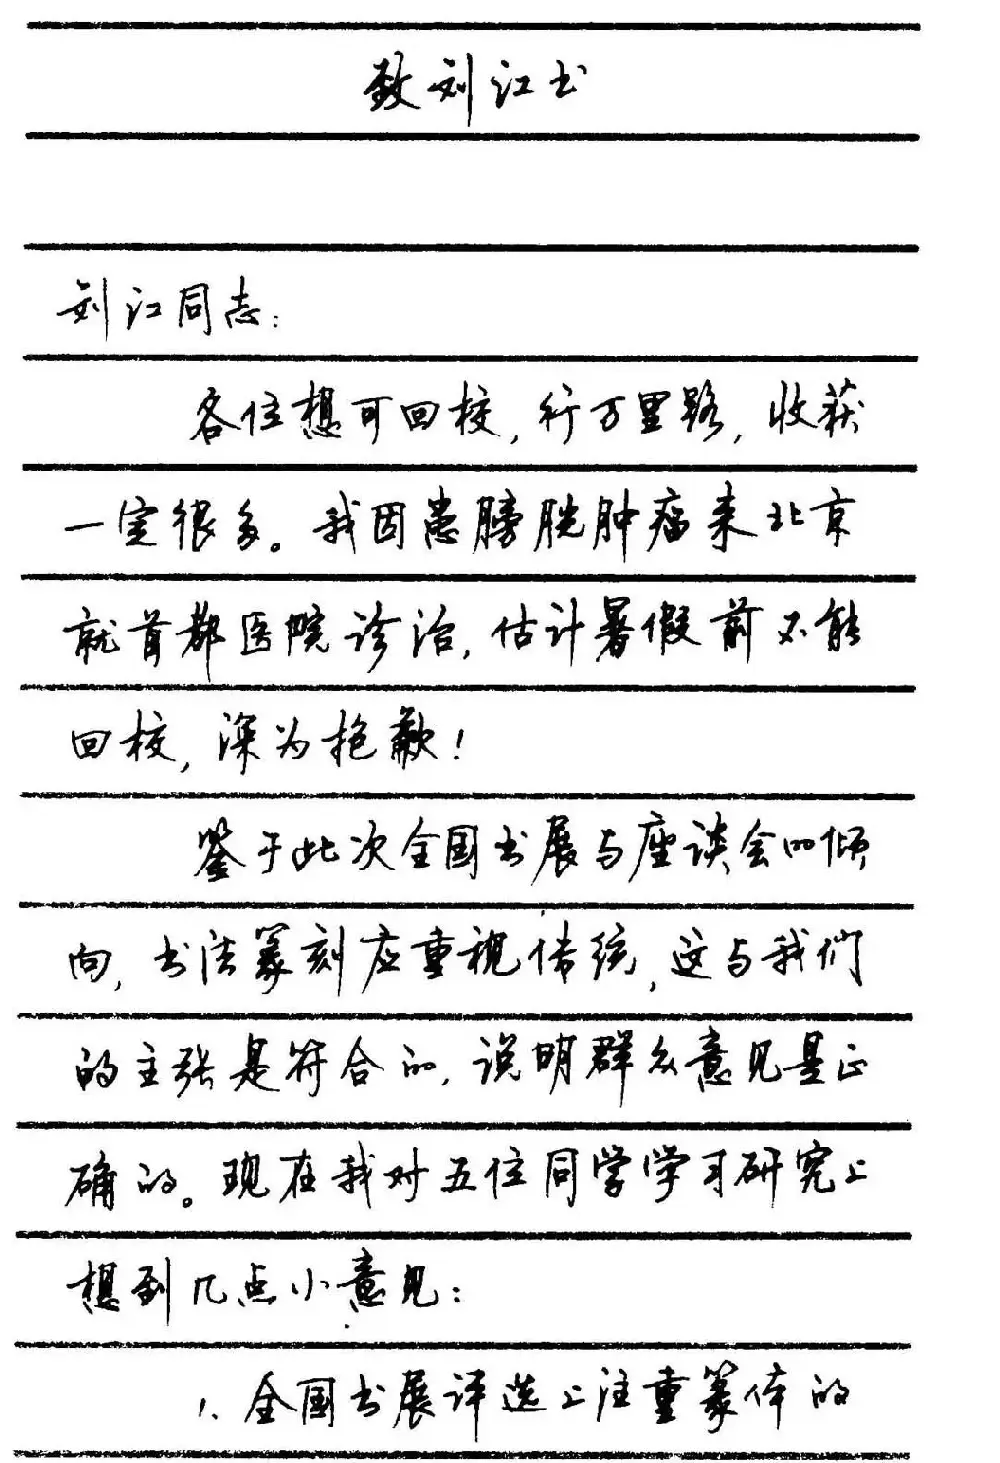 致刘江书
刘江同志：
各位想可回校，行万里路，收获
一定很多。我因患膀胱肿瘤来北京
就首都医院诊治，估计暑假前不能
回校，深为抱歉！
鉴于此次全国书展与座谈会的倾
向，书法篆刻应重视传统，这与我们
的主张是符合的，说明群众意见是正
确的。现在我对五位同学学习研究上
想到几点小意见：
1、全国书展评选上注重篆体的